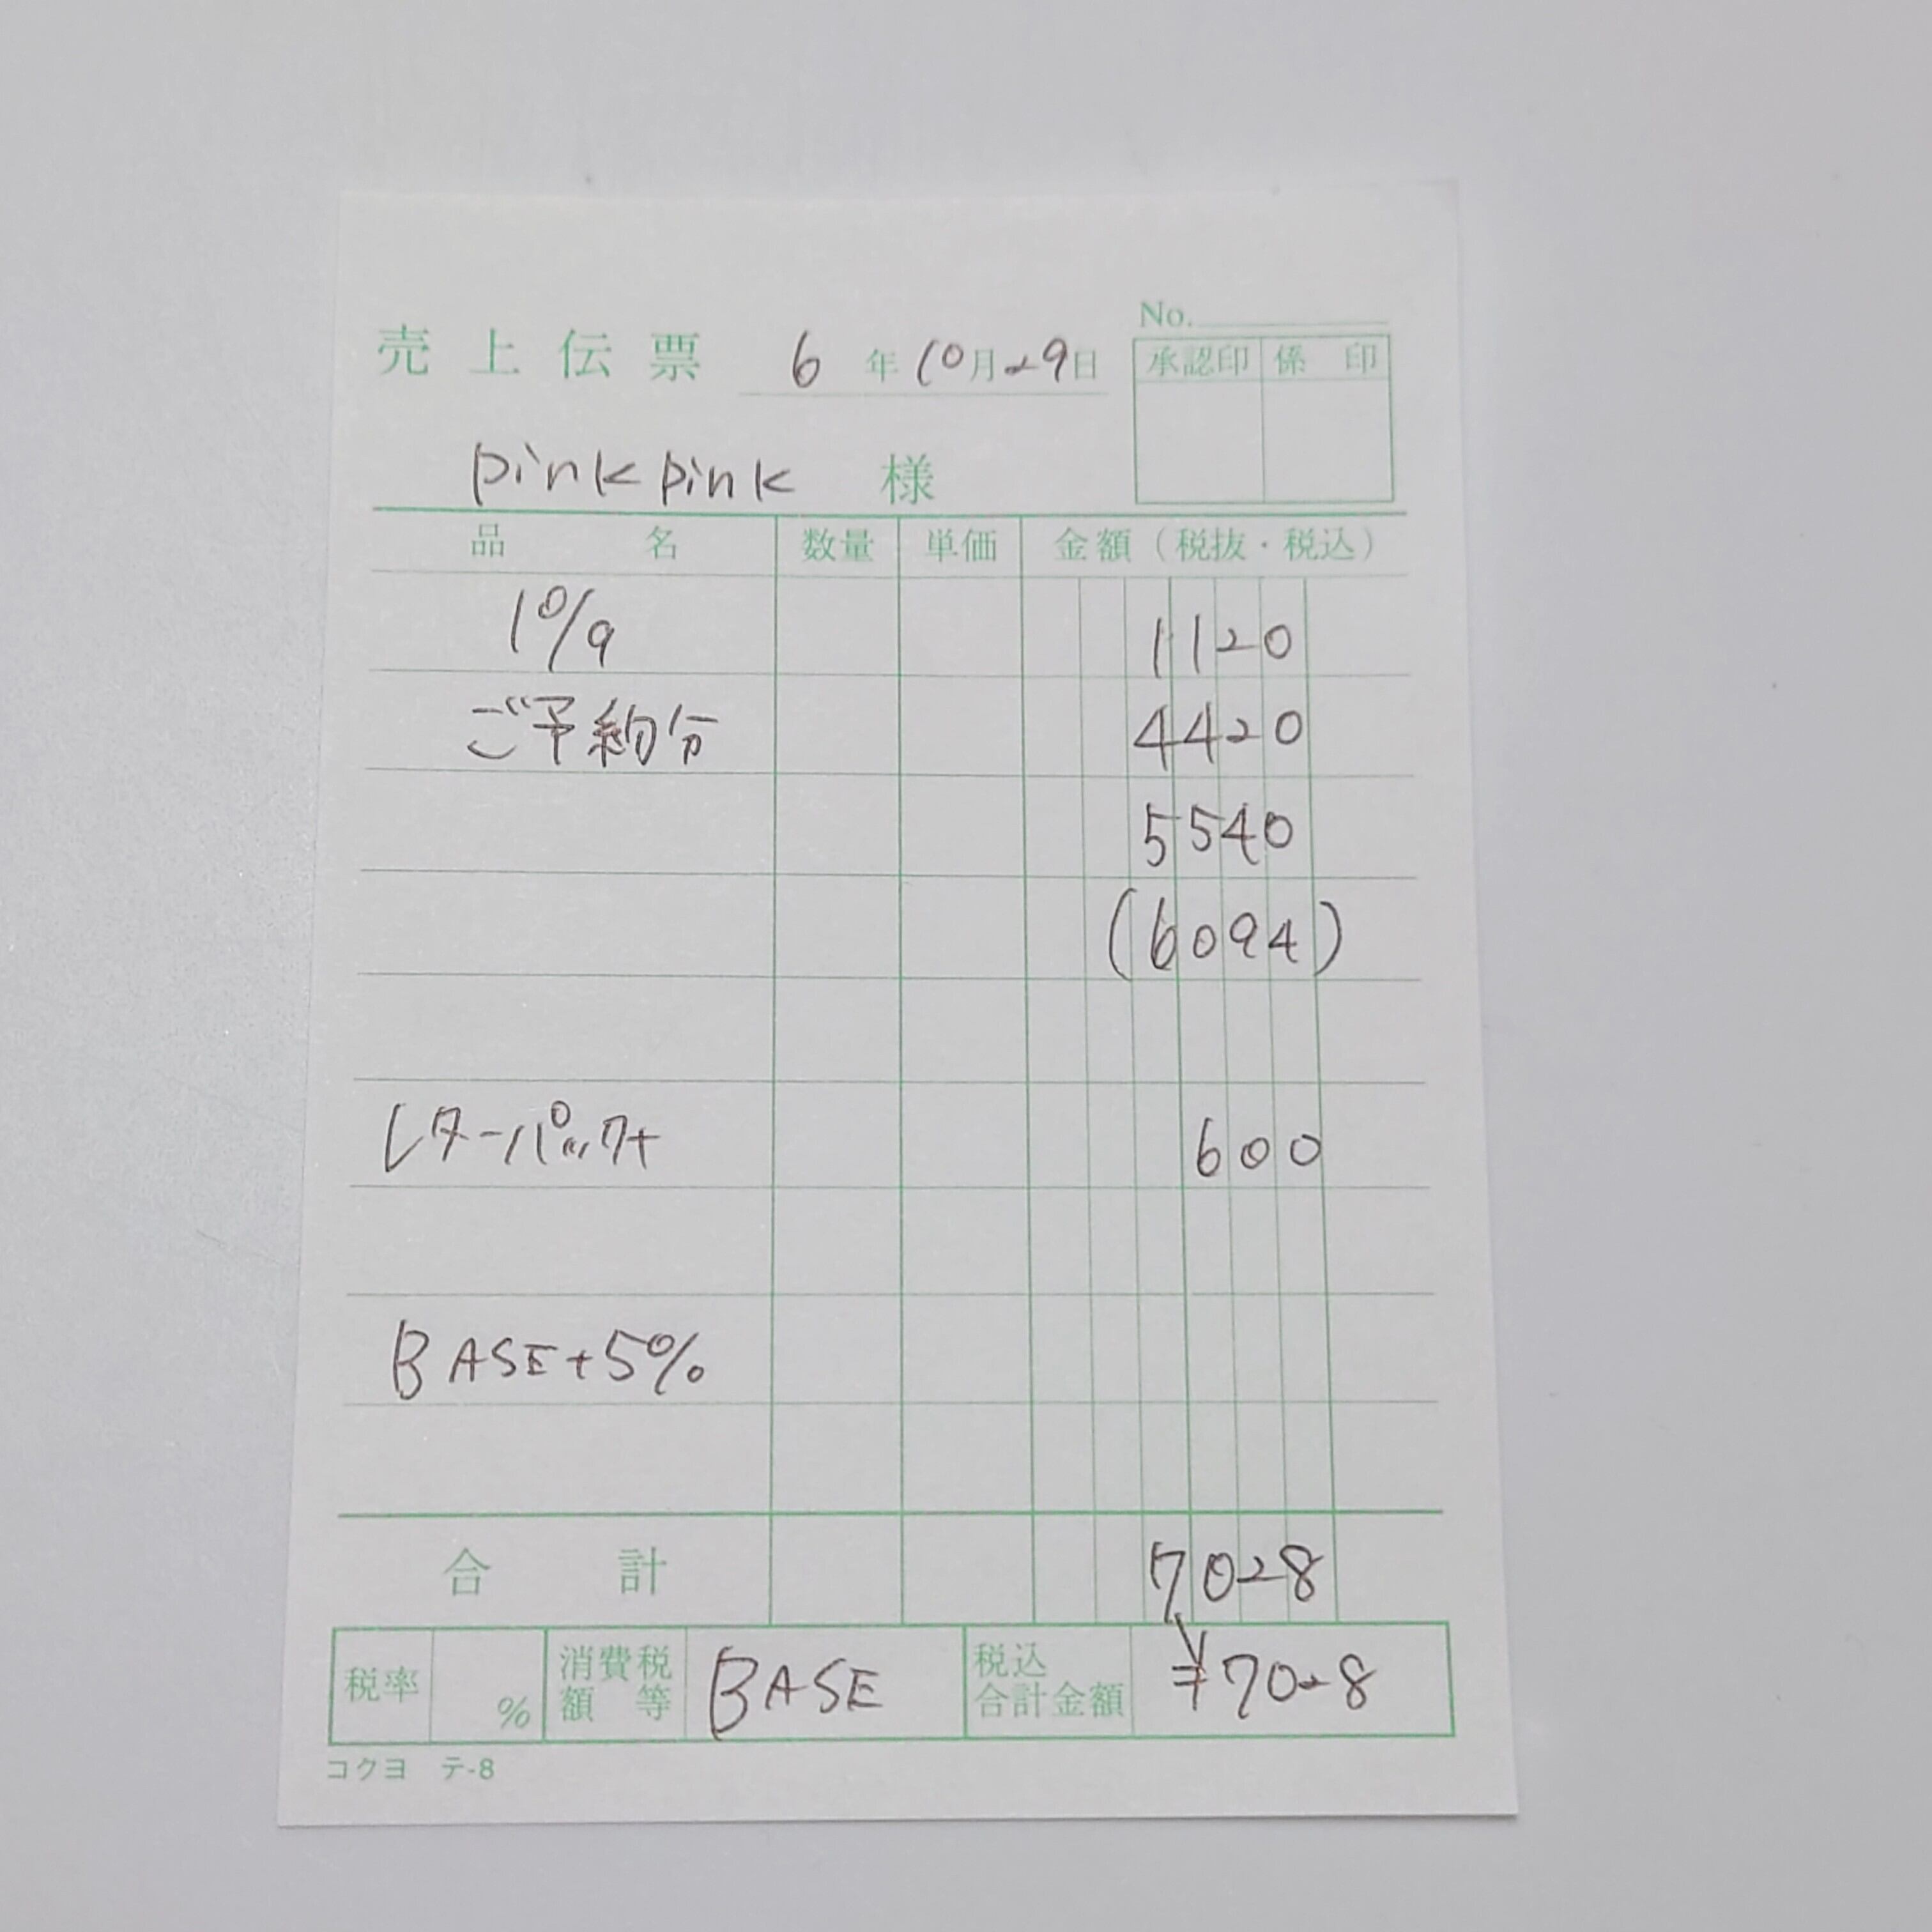 No.
売上伝票 6年10月29日
承認印 係印
pink pink 様
品名 数量 単価 金額（税抜・税込）
10/9 1120
ご予約分 4420
5540
(6094)
レターパック+ 600
BASE+5%
合計 7028
税率 % 消費税額等 BASE 税込合計金額 ¥7028
コクヨ テ-8